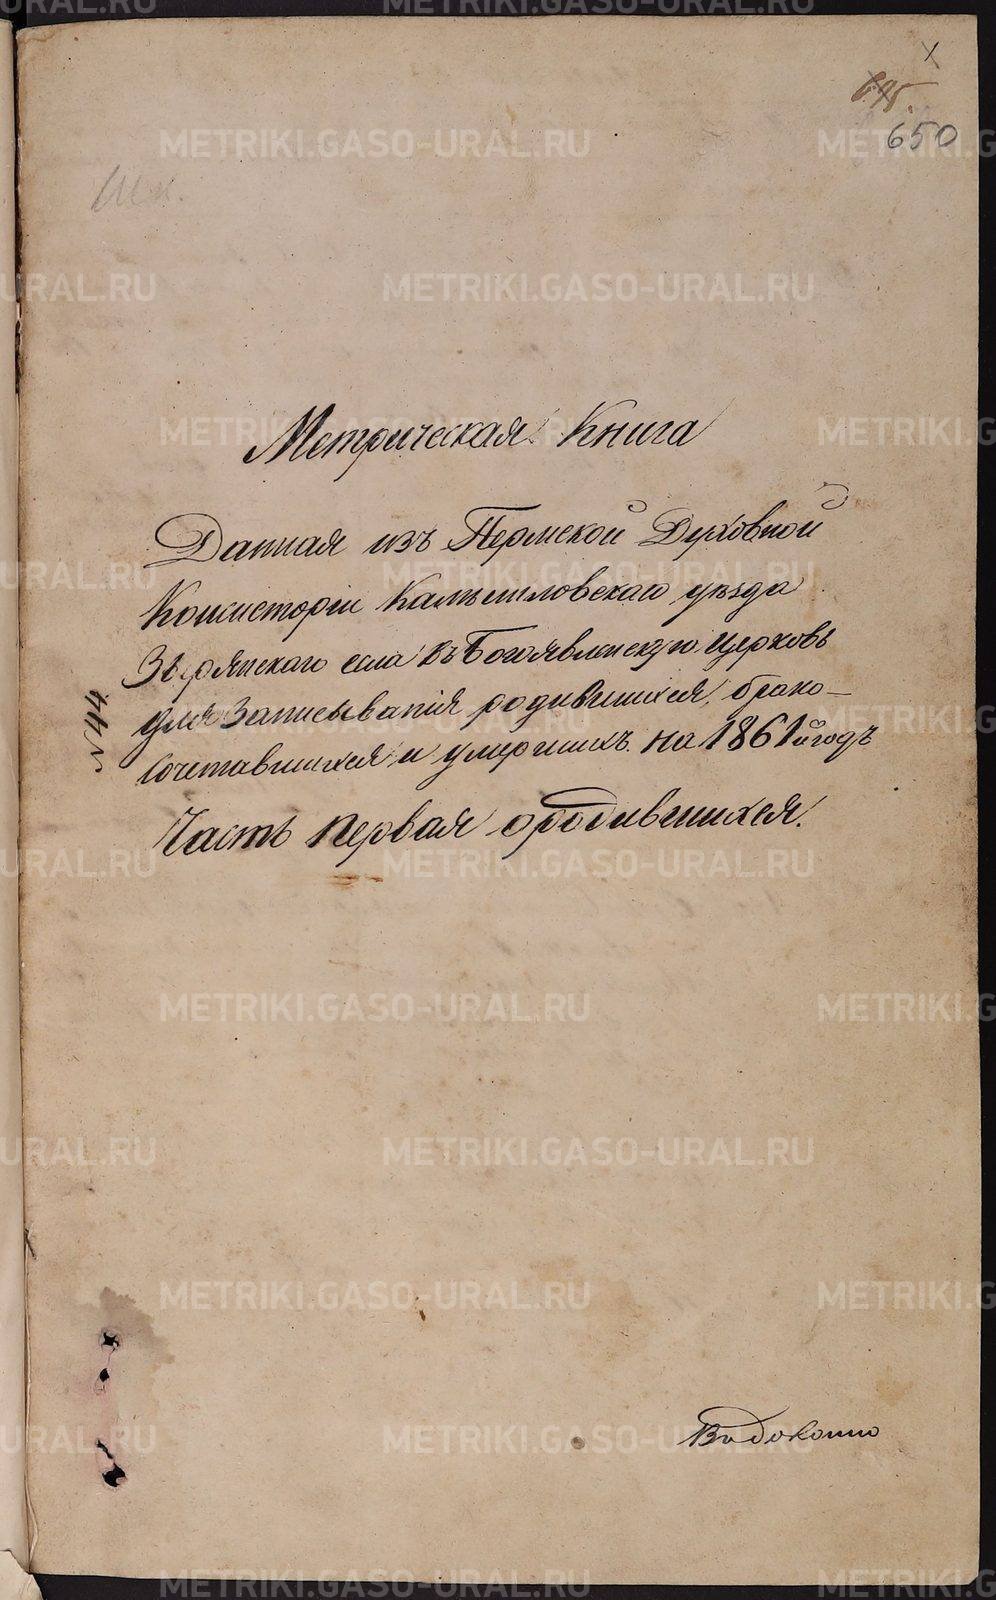 650
Метрическая Книга
Данная изъ Пермской Духовной
Консисторіи Камышловскаго уѣзда
Зырянскаго села въ Богоявленскую церковь
для Записыванія родившихся, брако-
сочетавшихся и умершихъ на 1861й годъ
Часть первая о родившихся.
METRIKI.GASO-URAL.RU